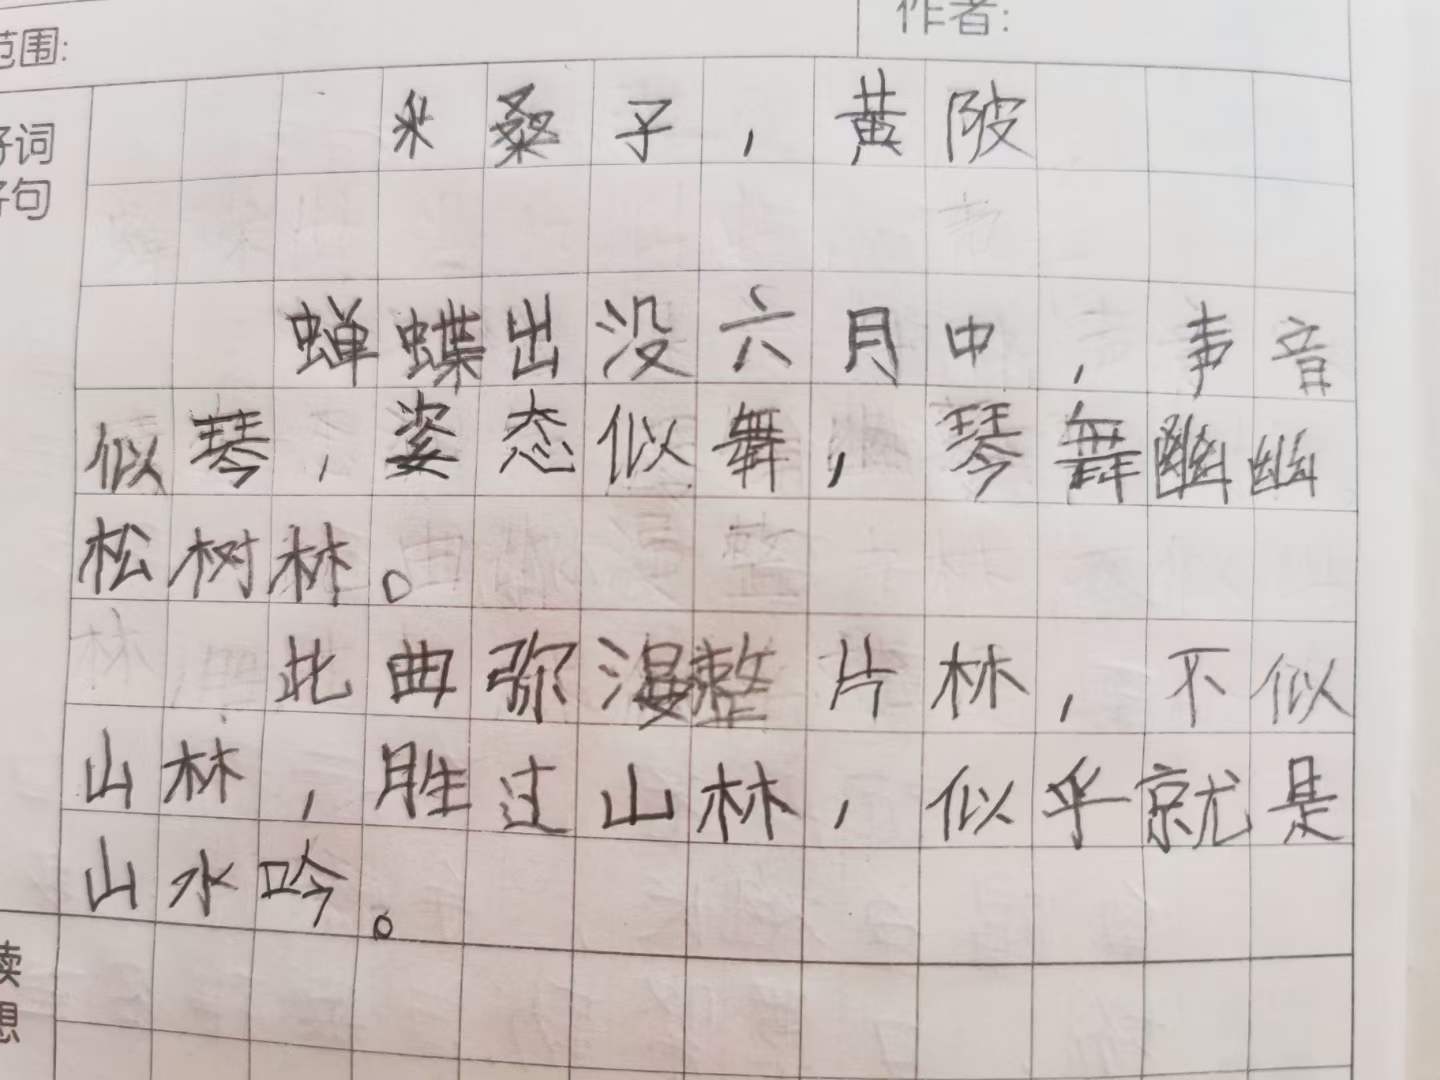 范围:
作者:
好词
好句
采桑子，黄陂
蝉蝶出没六月中，声音
似琴，姿态似舞，琴舞幽幽
松树林。
此曲弥漫整片林，不似
山林，胜过山林，似乎就是
山水吟。
读
想